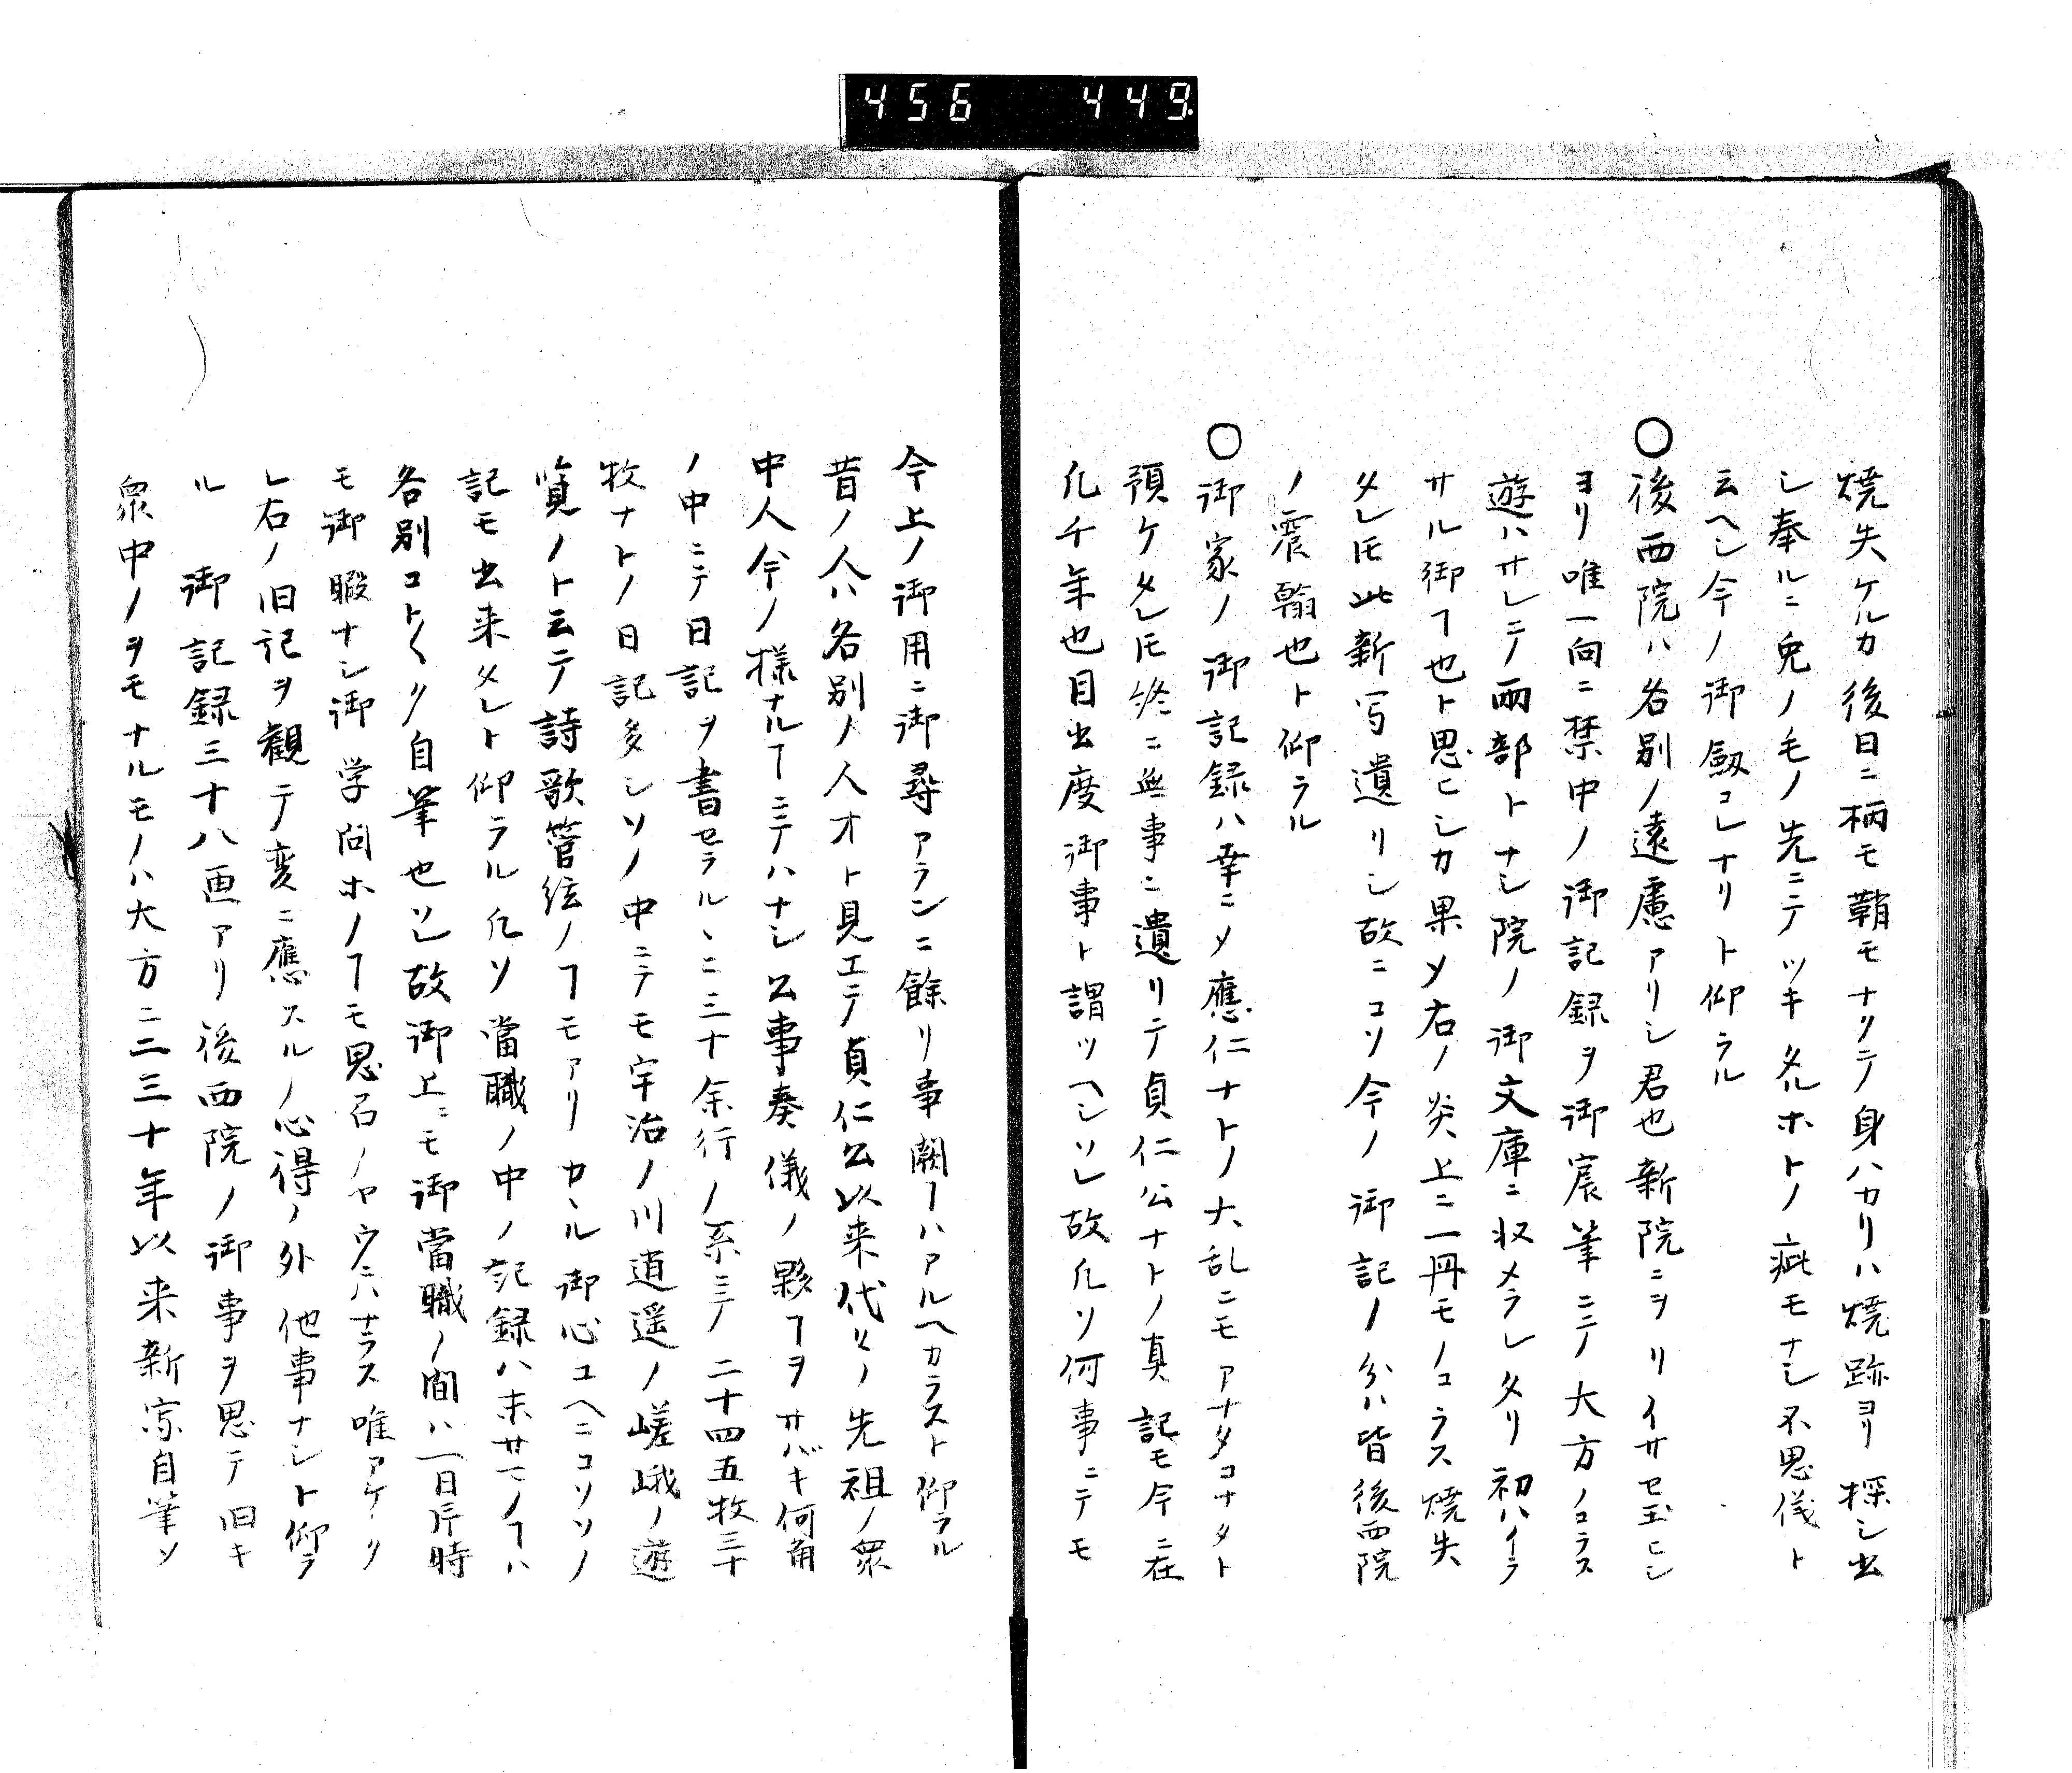 456 449
焼失ケルカ後日ニ柄モ鞘モナクテ身ハカリハ焼跡ヨリ探シ出
シ奉ルニ兎ノ毛ノ先ニテツキタルホトノ疵モナシ不思儀ト
云ヘシ今ノ御劔コレナリト仰ラル
〇後西院ハ各別ノ遠慮アリシ君也新院ニヲリイサセ玉ヒシ
ヨリ唯一向ニ禁中ノ御記録ヲ御宸筆ニテノ大方ノコラス
遊ハサレニテ両部トナシ院ノ御文庫ニ収メラレタリ初ハイラ
サル御ヿ也ト思ヒシカ果〆右ノ炎上ニ一冊モノコラス焼失
タレ𪜈此新写遺リシ故ニコソ今ノ御記ノ分ハ皆後西院
ノ震翰也ト仰ラル
〇御家ノ御記録ハ幸ニ〆應仁ナトノ大乱ニモアナタコナタト
預ケタレ𪜈終ニ無事ニ遺リテ貞仁公ナトノ真記モ今ニ在
凡千年也目出度御事ト謂ツヘシソレ故凡ソ何事ニテモ
今上ノ御用ニ御尋アランニ餘リ事闕ヿハアルヘカラスト仰ラル
昔ノ人ハ各別ノ人オト見エテ貞仁公以来代々ノ先祖ノ衆
中人今ノ様ナルヿニテハナシ公事奏儀ノ夥ヿヲサバキ何角
ノ中ニテ日記ヲ書セラルヽニ三十余行ノ系ニテノ二十四五枚三十
牧ナトノ日記多シソノ中ニテモ宇治ノ川逍遥ノ嵯峨ノ遊
覧ノト云テ詩歌管弦ノヿモアリカヽル御心ユヘニコソソノ
記モ出来タレト仰ラル凡ソ當職ノ中ノ記録ハ末サマノヿハ
各別コト〱ク自筆也ソレ故御上ニモ御當職ノ間ハ一日片時
モ御暇ナシ御学問ホノヿモ思召ノヤウニハナラス唯アケクリ
レ右ノ旧記ヲ観テ変ニ應スルノ心得ノ外他事ナシト仰ラ
ル 御記録三十八画アリ後西院ノ御事ヲ思テ旧キ
衆中ノヲモナルモノハ大方ニ二三十年以来新写自筆ソ